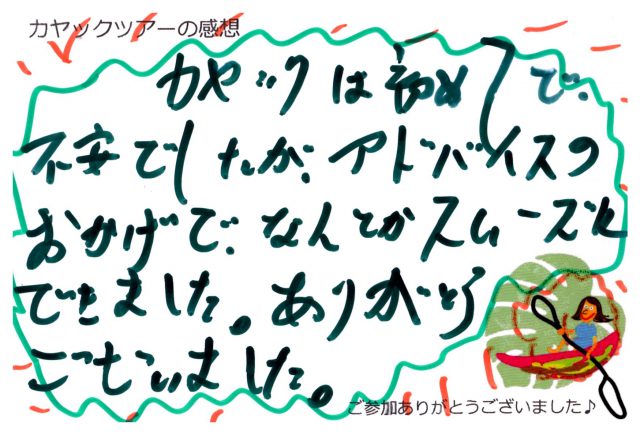 カヤックツアーの感想
カヤックは初めてで、
不安でしたが、アドバイスの
おかげで、なんとかスムーズに
できました。ありがとう
ございました。
ご参加ありがとうございました♪